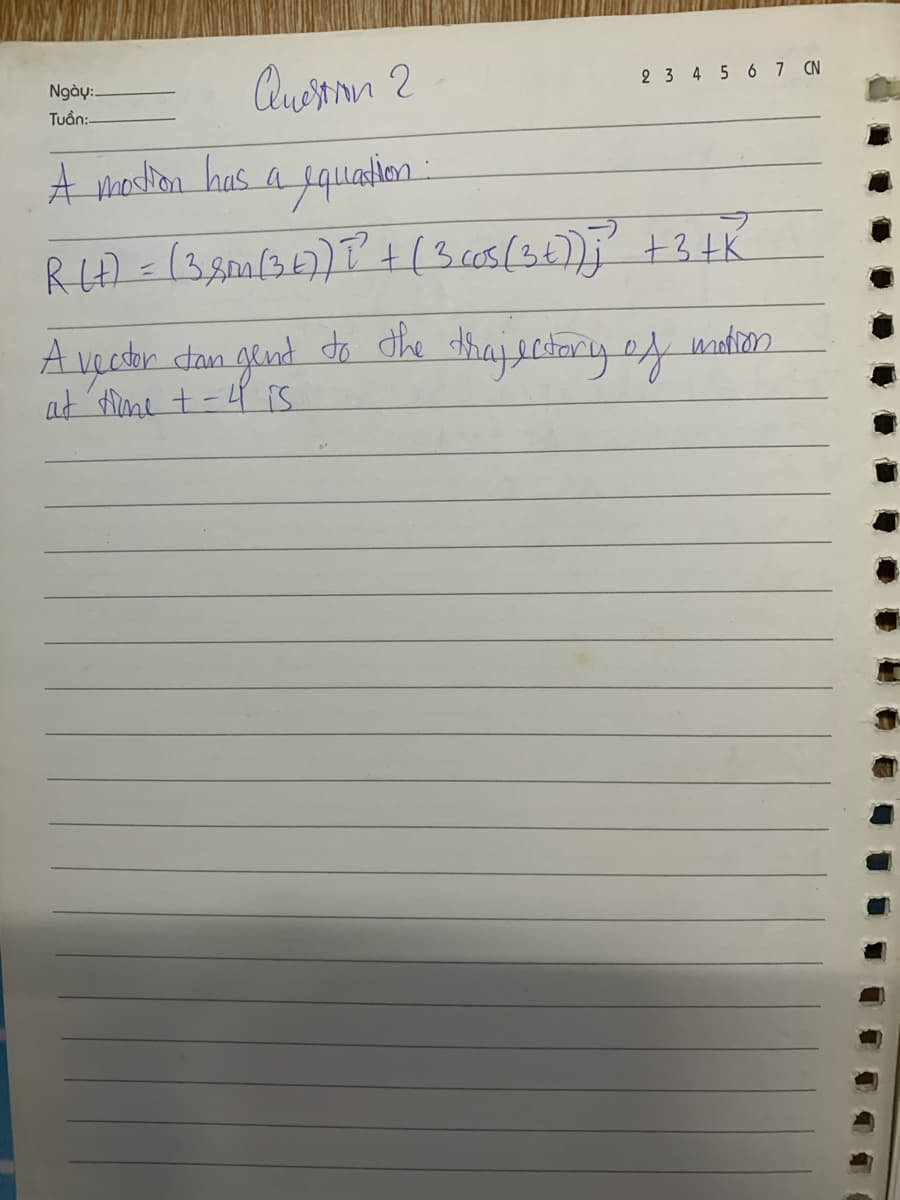 Ngày:
Tuần:
Question 2
2 3 4 5 6 7 CN
A motion has a equation:
R(t) = (3sin(3t))i⃗ + (3cos(3t))j⃗ + 3tk⃗
A vector tangent to the thajectory of motion
at time t = 4 is